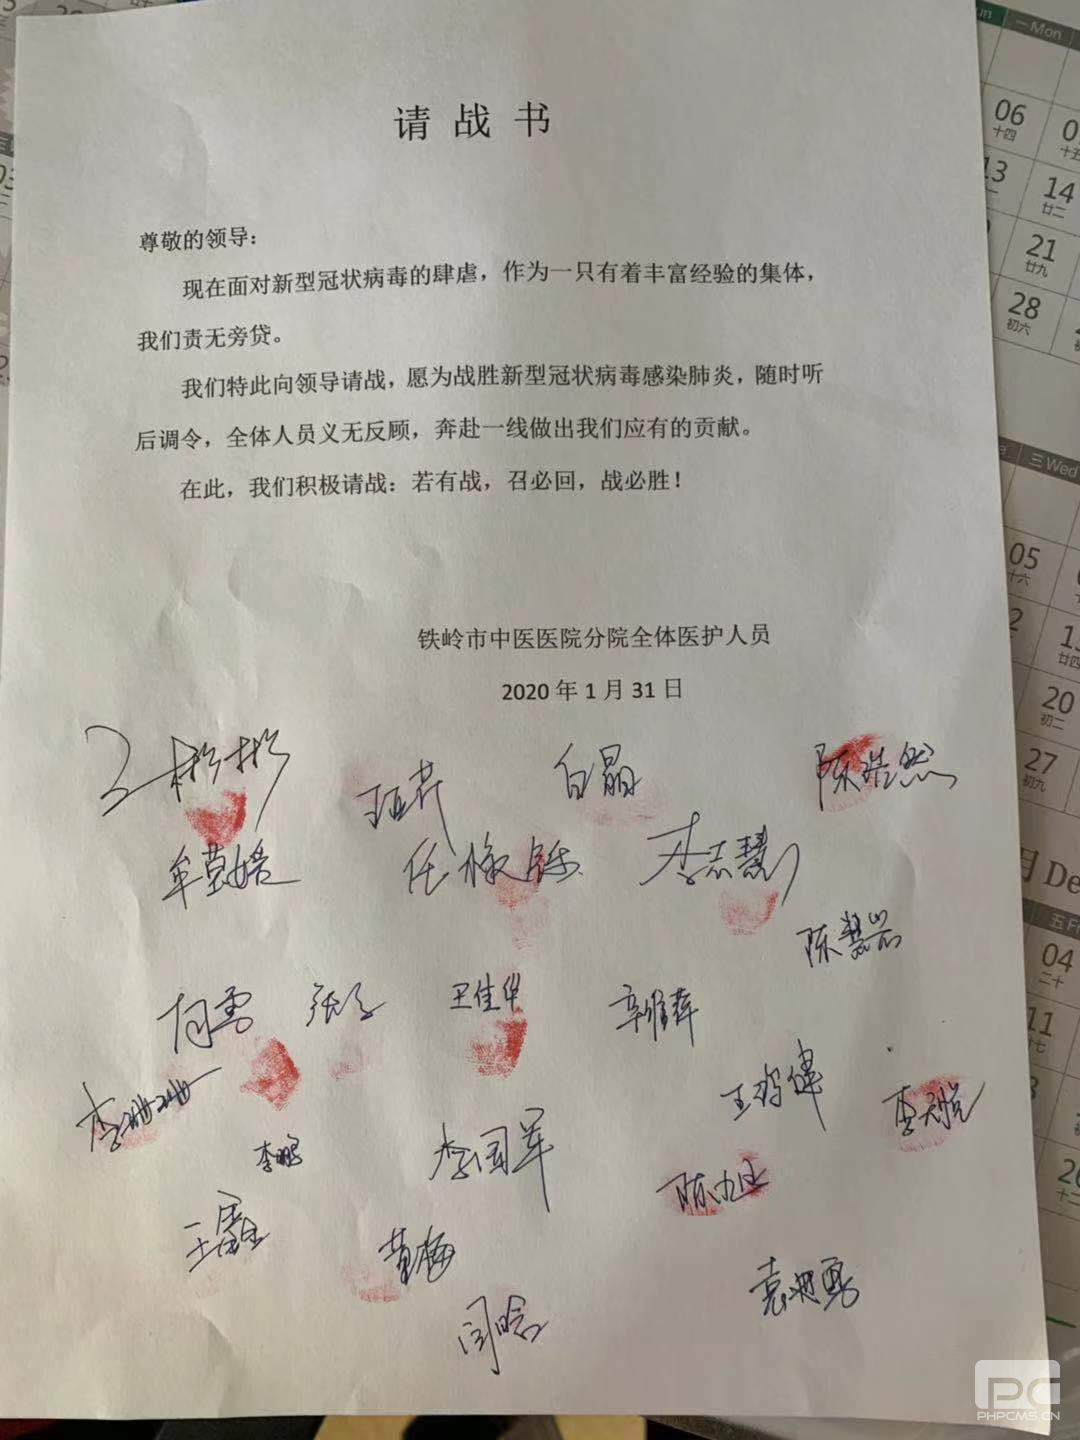 请战书
尊敬的领导：
现在面对新型冠状病毒的肆虐，作为一只有着丰富经验的集体，
我们责无旁贷。
我们特此向领导请战，愿为战胜新型冠状病毒感染肺炎，随时听
后调令，全体人员义无反顾，奔赴一线做出我们应有的贡献。
在此，我们积极请战：若有战，召必回，战必胜！
铁岭市中医医院分院全体医护人员
2020 年 1 月 31 日
王彬彬
白晶
陈浩然
李志慧
王佳华
李珊珊
李鹏
李国军
陈旭
黄梅
闫晗
一 Mon
06
十四
13
14
廿二
21
廿九
28
初六
三 Wed
05
十六
20
初二
27
初九
De
04
二十
11
PC
PHPCMS.CN